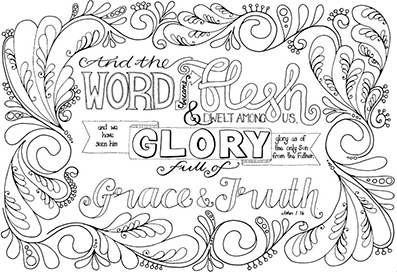 And the
WORD became flesh
& DWELT AMONG US.
and we have seen him
GLORY
glory as of the only Son from the Father,
full of
Grace & Truth
John 1:16